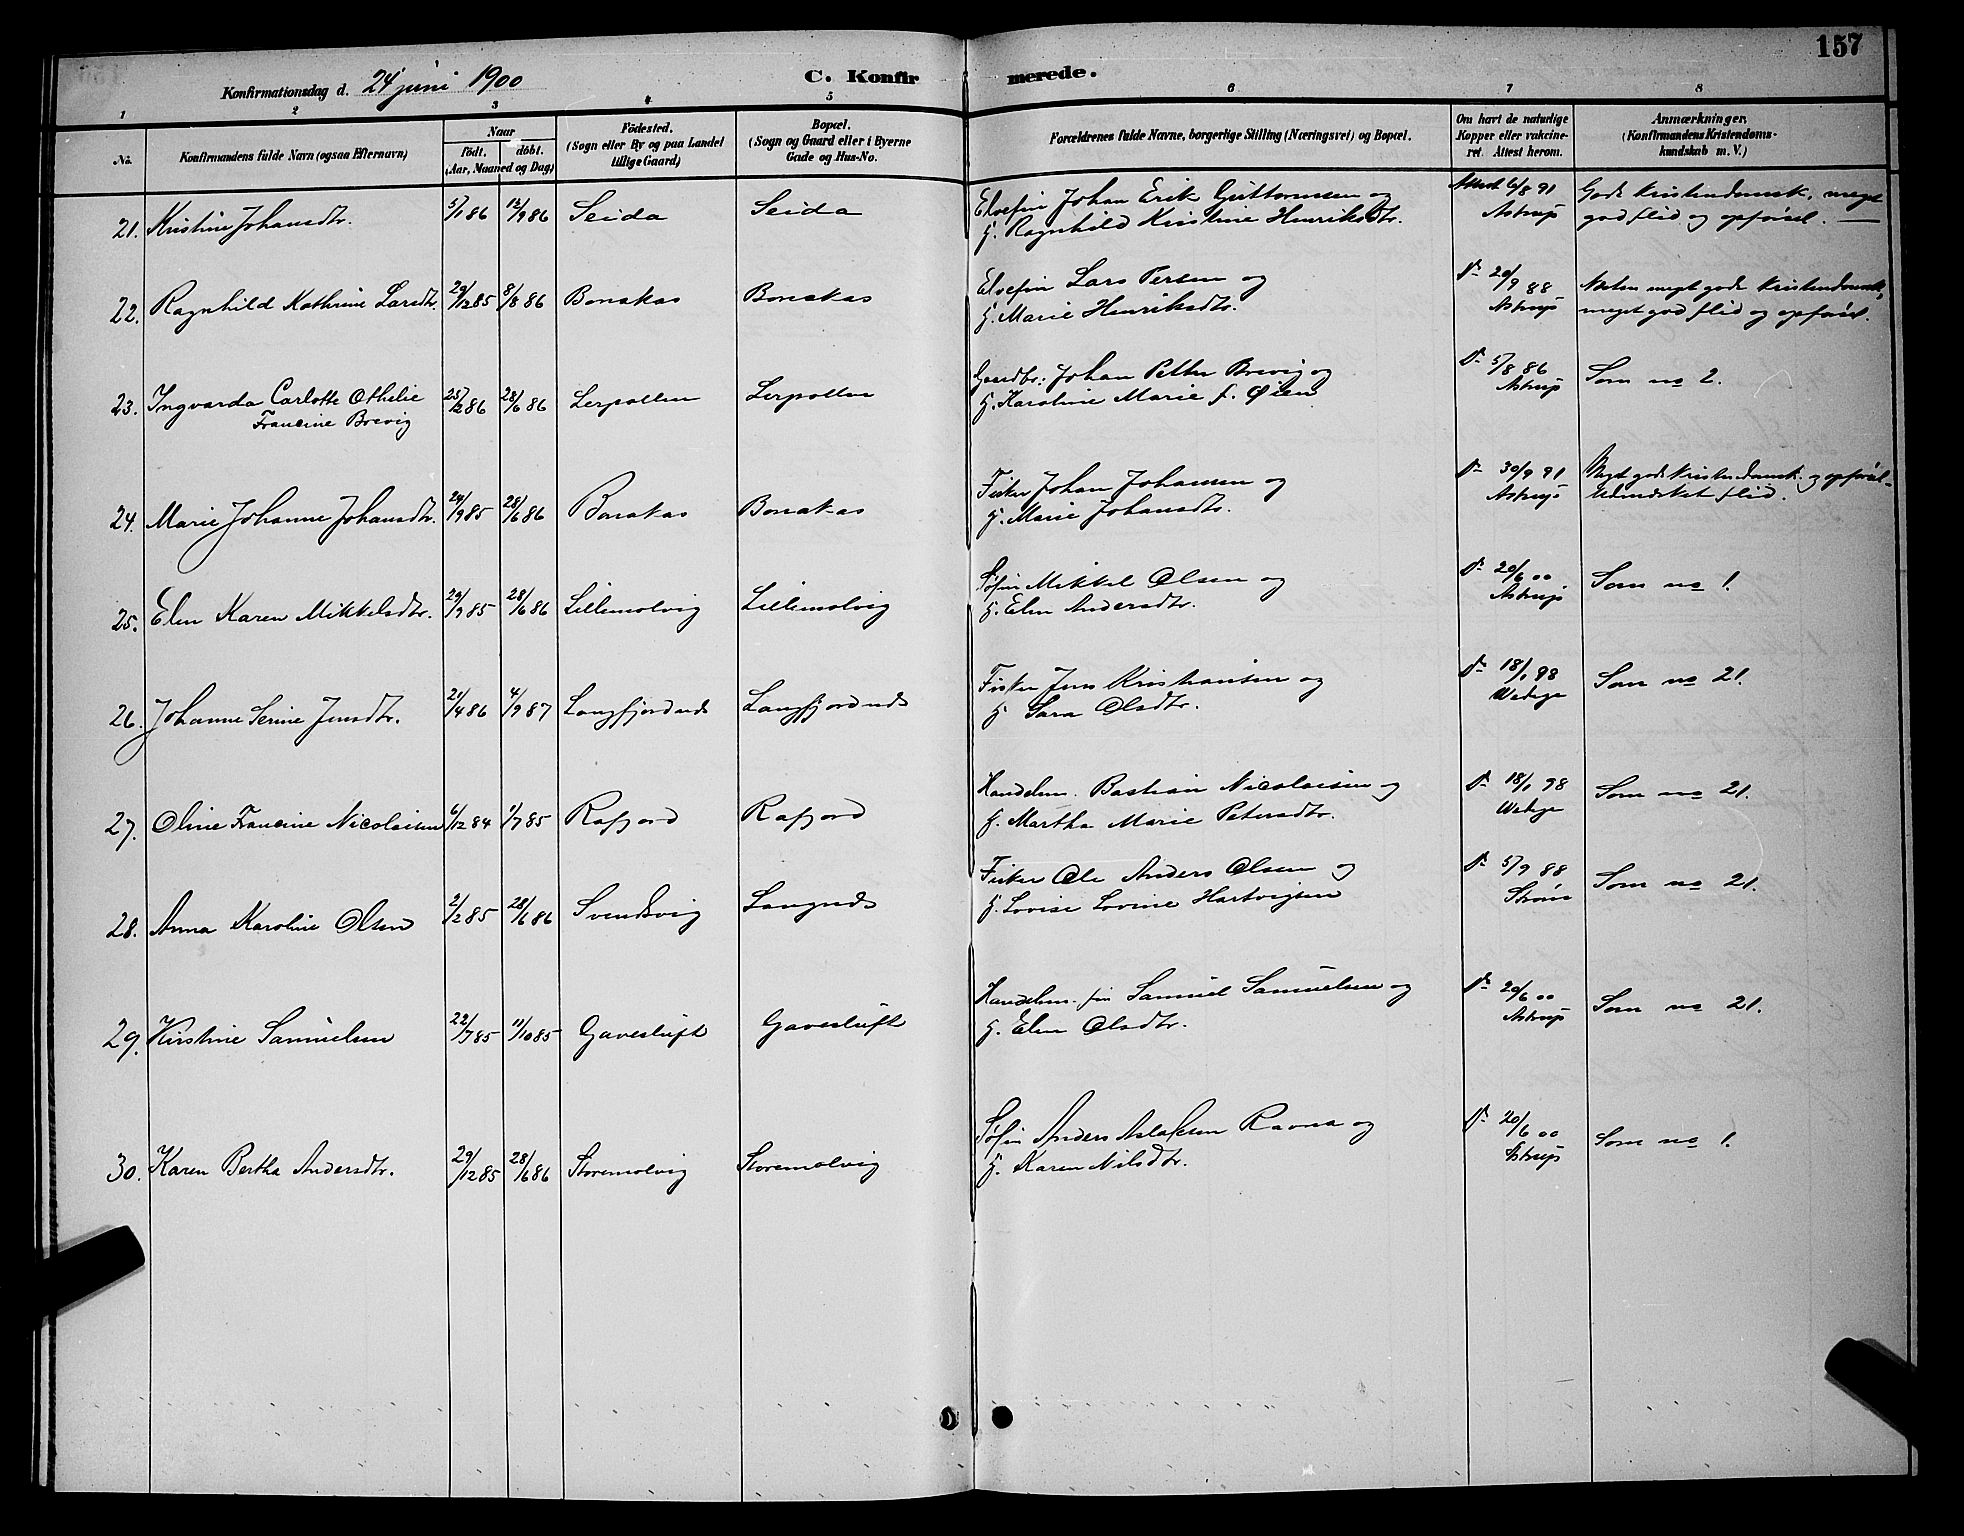 157
Konfirmationsdag d. 24 juni 1900
C. Konfirmerede.
1 2 3 4 5 6 7 8
No. Konfirmandens fulde Navn (ogsaa Efternavn) Naar født. døbt. (Aar, Maaned og Dag) Fødested. (Sogn eller By og paa Landet tillige Gaard) Bopæl. (Sogn og Gaard eller i Byerne Gade og Hus-No. Forældrenes fulde Navne, borgerlige Stilling (Næringsvei) og Bopæl. Om havt de naturlige Kopper eller vakcineret. Attest herom. Anmærkninger. (Konfirmandens Kristendomskundskab m. V.)
21. Kristine Johansdtr. 5/1 86 12/9 86 Seida Seida Elvefin Johan Erik Guttormsen og
H. Ragnhild Kristine Henriksdtr. Attest 6/8 91 Astrup Gode kristendomsk., meget
god flid og opførsel.
22. Ragnhild Kathrine Larsdtr. 29/12 85 8/8 86 Bonakas Bonakas Elvefin Lars Persen og
H. Marie Henriksdtr. Do 20/9 88 Astrup Næsten meget gode kristendomsk.,
meget god flid og opførsel.
23. Ingvarda Carlotte Othelie
Francine Brevig 25/2 86 28/6 86 Lerpollen Lerpollen Gaardbr: Johan Petter Brevig og
H. Karoline Marie f. Øien Do 5/8 86 Astrup Som no 2.
24. Marie Johanne Johansdtr. 29/9 85 28/6 86 Bonakas Bonakas Fisker Johan Johansen og
H. Marie Johansdtr. Do 30/9 91 Astrup Meget gode kristendomsk. og opførsel.
Udmerket flid.
25. Elen Karen Mikkelsdtr. 29/9 85 28/6 86 Lillemolvig Lillemolvig Søfin Mikkel Olsen og
H. Elen Andersdtr. Do 20/6 00 Astrup Som no 1.
26. Johanne Serine Jensdtr. 21/4 86 4/9 87 Langfjordnds Langfjordnds Fisker Jens Kristiansen og
H. Sara Olsdtr. Do 18/1 98 Som no 21.
27. Oline Francine Nicolaisen 6/12 84 1/7 85 Rafjord Rafjord Handelsm. Bastian Nicolaisen og
H. Martha Marie Petersdtr. Do 18/1 98 Som no 21.
28. Anna Karoline Olsen 2/2 85 28/6 86 Svendsvig Langnds Fisker Ole Anders Olsen og
H. Lovise Lovine Hartvigsen Do 5/9 88 Strøm Som no 21.
29. Kirstine Samuelsen 22/7 85 11/10 85 Gavesluft Gavesluft Handelsm. fin Samuel Samuelsen og
H. Elen Olsdtr. Do 20/6 00 Astrup Som no 21.
30. Karen Bertha Andersdtr. 29/12 85 28/6 86 Storemolvig Storemolvig Søfin Anders Aslaksen Ravna og
H. Karen Nilsdtr. Do 20/6 00 Astrup Som no 1.